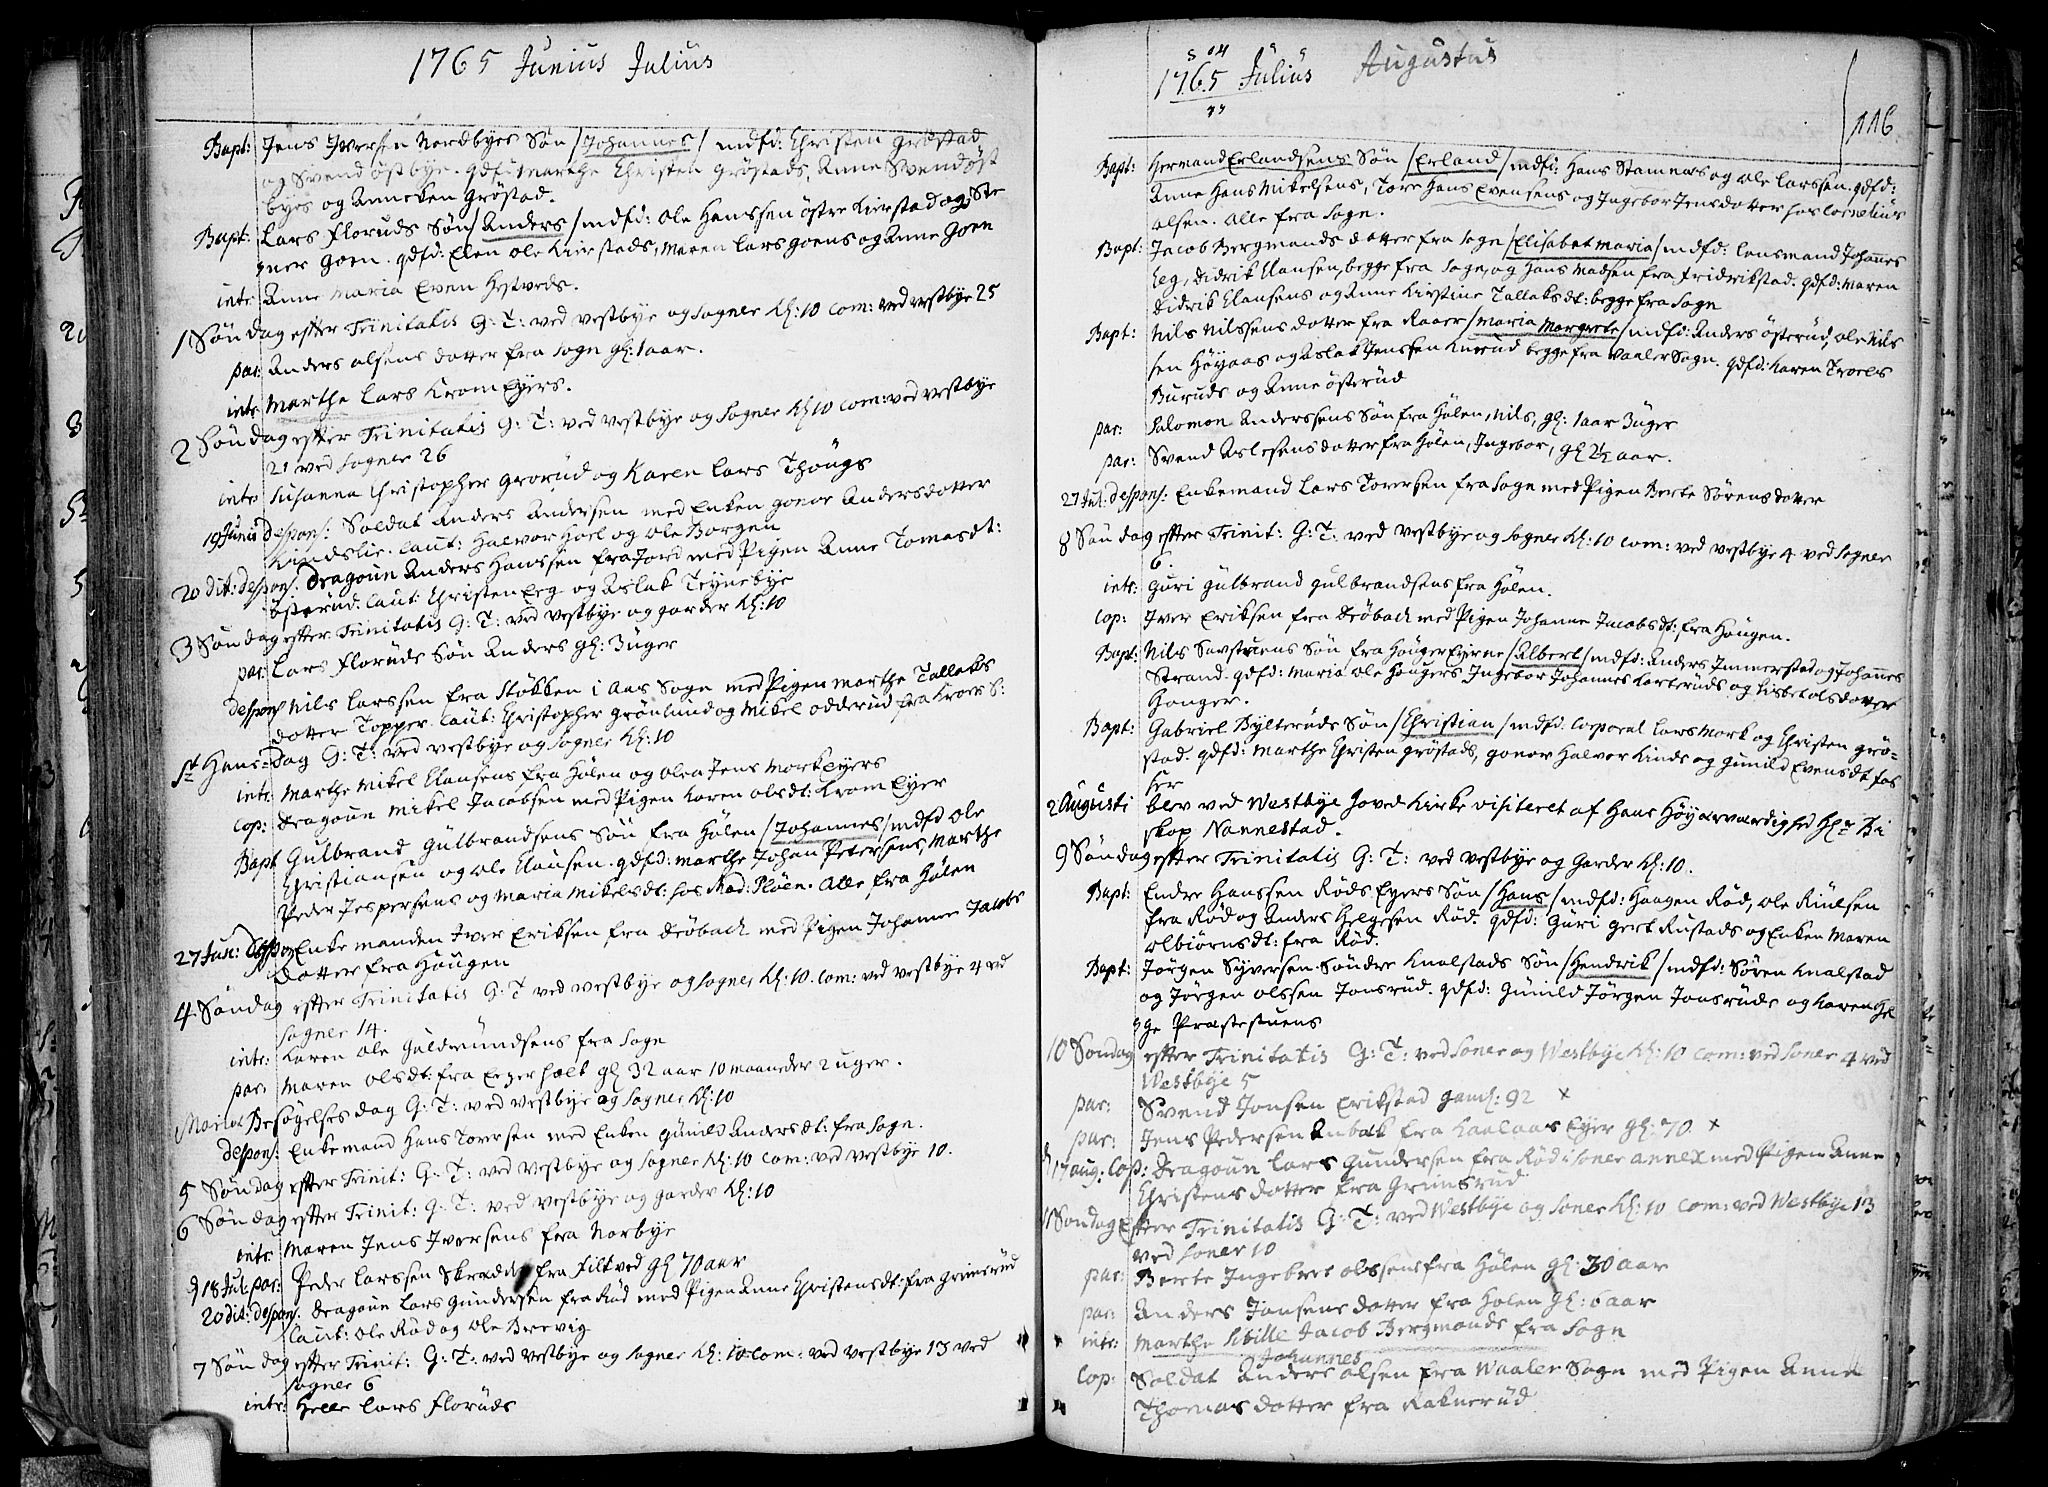 1765 Junius Julius
Bapt: Jens Iversen Nordbyes Søn /Johannes/ mdfd: Christen Grøstad
og Svend østbye. qdfd: Marthe Christen Grøstads, Anne Svend øst
byes og Anneken Grøstad.
Bapt: Lars Floruds Søn /Anders/ mdfd: Ole Hanssen østre Kierstad og Ste
Goen. qdfd: Elen Ole Kierstads, Maren Lars Goens og Anne Goen
intr: Anne Maria Even Hestveds.
1 Søndag efter Trinitatis G: T: ved Vestbye og Sogner Kl: 10 Com: ved Vestbye 25
par: Anders Olsens datter fra Sogn gl: 1 aar.
intr Marthe Lars Krom Eyers.
2 Søndag efter Trinitatis G: T: ved Vestbye og Sogner Kl 10 Com: ved Vestbye
21 ved Sogner 26
intr Susanna Christopher Grorud og Karen Lars Thougs
19 Junii despons: Soldat Anders Andersen med Enken Gonor Andersdatter
Kindslie. Caut: Halvor Hoel og Ole Borgen
20 dit: despons: Dragoun Anders Hanssen fra Jord med Pigen Anne Tomasdt:
østerud. Caut: Christen Erg og Aslak Teynebye
3 Søndag efter Trinitatis G: T: ved Vestbye og Garder Kl: 10
par: Lars Floruds Søn Anders gl: 3 uger
despons Nils Larssen fra Stokken i Aas Sogn med Pigen Marthe Tallaks
dotter Topper. Caut: Christopher Grønlund og Mikel Odderud fra Kroer S:
St Hans-Dag G: T: ved Vestbye og Sogner Kl: 10
intr: Marthe Mikel Clausens fra Hølen og Olea Jens Mork Eyers
Cop: Dragoun Mikel Jacobsen med Pigen Karen Olsdt: Krom Eyer
Bapt Gulbrand Gulbrandsens Søn fra Hølen /Johannes/ mdfd Ole
Christiansen og Ole Clausen. qdfd: Marthe Johan Petersens, Marthe
Peder Jespersens og Maria Mikelsdt: hos Mad: Pløen. Alle fra Hølen
27 Jun: Despons Enkemanden Iver Eriksen fra Drøbach med Pigen Johanne Jacobs
Datter fra Hougen
4 Søndag efter Trinitatis G: T ved Vestbye og Sogner Kl: 10. Com: ved Vestbye 4 ved
Sogner 14.
intr: Karen Ole Guldmundsens fra Sogn
par: Maren Olsdt: fra holt gl 32 aar 10 maaneder 2 uger.
Mariæ Besøgelses dag G: T: ved Vestbye og Sogner Kl: 10
despons: Enkemand Hans Toersen med Enken Gunild Andersdt: fra Sogn.
5 Søndag efter Trinit: G: T: ved Vestbye og Sogner Kl: 10 Com: ved Vestbye 10.
6 Søndag efter Trinit: G: T: ved Vestbye og Garder Kl: 10
intr: Maren Jens Iversens fra Norbye
d 18 Jul: par: Peder Larssen Skrædder fra Filtved gl 70 aar
20 dit: despons: Dragoun Lars Gundersen fra Rød med Pigen Anne Christensdt: fra Grimsrud
Caut: Ole Rød og Ole Brevig
7 Søndag efter Trinit: G: T: ved Vestbye og Sogner Kl: 10 Com: ved Vestbye 13 ved
Sogner 6
intr: Helle Lars Floruds
1765 Julius Augustus
116
Bapt: Hervand Erlandsens Søn /Erland/ mdfd: Hans Stamnes og Ole Larssen. qdfd:
Anne Hans Mikelsens, Tore Hans Evensens og Ingebor Jensdotter hos Cornelius
Olsen. Alle fra Sogn.
Bapt: Jacob Bergmands dotter fra Sogn /Elisabet Maria/ mdfd: Lensmand Johannes
Erg, Didrik Clausen, begge fra Sogn, og Hans Madsen fra Fridrikstad. qdfd: Maren
Didrik Clausens og Anne Kirstine Tallaksdt: begge fra Sogn
Bapt: Nils Nilssens dotter fra Raaer /Maria Margrete/ mdfd: Anders østerud, Ole Nils
sen Høyaas og Aslak Jenssen Knrud begge fra Vaaler Sogn. qdfd: Karen Troels
Buruds og Anne østerud
par: Salomon Anderssens Søn fra Hølen, Nils, gl: 1 aar 3 uger
par: Svend Aslesens dotter fra Hølen, Ingebor, gl 2½ aar.
27 Jul: despons: Enkemand Lars Toersen fra Sogn med Pigen Berte Sørensdatter
8 Søndag efter Trinit: G: T: ved Vestbye og Sogner Kl: 10 Com: ved Vestbye 4 ved Sogner
6.
intr: Guri Gulbrand Gulbrandsens fra Hølen.
Cop: Iver Eriksen fra Drøbach med Pigen Johanne Jacobsdt: fra Hougen.
Bapt: Nils Søn fra Houger /Albert/ mdfd: Anders Immerstad og Johannes
Strand. qdfd: Maria Ole Hougers Ingebor Johannes Karteruds og Lisbet Olsdotter
Houger.
Bapt: Gabriel Bylteruds Søn /Christian/ mdfd: Corporal Lars Mork og Christen Grø-
stad. qdfd: Marthe Christen Grøstads, Gonor Halvor Kinds og Gunild Evensdt fos
ser
2 Augusti blev ved Westbye Hoved Kirke visiteret af Hans Høyærværdighed Hr Bi
skop Nannestad.
9 Søndag efter Trinitatis G: T: ved Vestbye og Garder Kl: 10.
Bapt: Endre Hanssen Røds Eyers Søn /Hans/ mdfd: Haagen Rød, Ole Kiulsen
fra Rød og Anders Helgesen Rød. qdfd: Guri Gert Rustads og Enken Maren
Olbiørnsdt: fra Rød.
Bapt: Jørgen Syversen Søndre Knalstads Søn /Hendrik/ mdfd: Søren Knalstad
og Jørgen Olssen Jonsrud. qdfd: Gunild Jørgen Jonsruds og Karen Hel
ge Præstestuens
10 Søndag efter Trinitatis G: T: ved Soner og Westbye Kl: 10 Com: ved Soner 4 ved
Westbye 5
par: Svend Jonsen Erikstad gaml: 92 x
par: Jens Pedersen Anbak fra Kaalaas Eyer gl: 70 x
d 17 aug: Cop: Dragoun Lars Gundersen fra Rød i Soner annex med Pigen Anne
Christens dotter fra Grimsrud
11 Søndag Efter Trinitatis G: T: ved Westbye og Soner Kl: 10 Com: ved Westbye 13
ved Soner 10
par: Berte Ingebret Olssens fra Hølen gl: 30 aar
par: Anders Jonsens dotter fra Hølen gl: 6 aar
intr: Marthe Sibille Jacob Bergmands fra Sogn
Johannes
Cop: Soldat Anders Olsen fra Waaler Sogn med Pigen Anne
Thomas dotter fra Raknerud